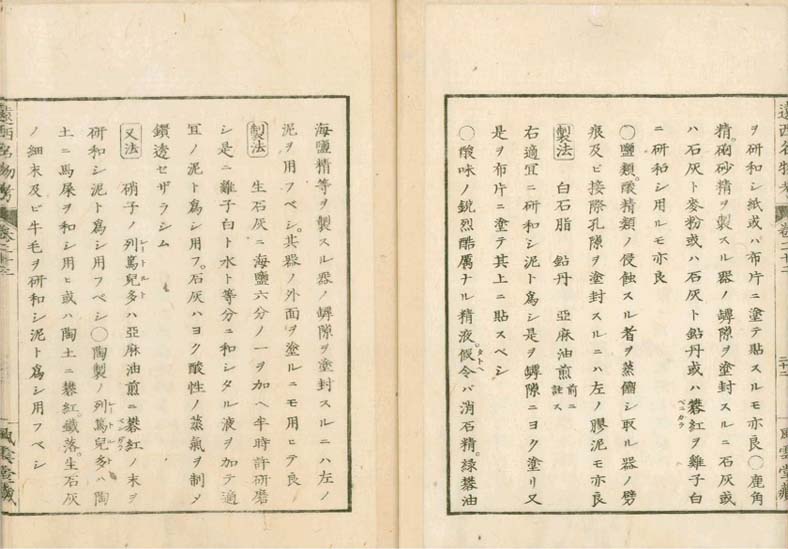 遠西名物考 卷二十二 二十二 風雲堂藏
ヲ研和シ紙或ハ布片ニ塗テ貼スルモ亦良〇鹿角
精硇砂精ヲ製スル器ノ罅隙ヲ塗封スルニ石灰或
ハ石灰ト麥粉或ハ石灰ト鉛丹或ハ礬紅ヲ雞子白
ベニガラ
ニ研和シ用ルモ亦良
〇鹽類。酸精類ノ侵蝕スル者ヲ蒸餾シ取ル器ノ劈
痕及ビ接際孔隙ヲ塗封スルニハ左ノ膠泥モ亦良
製法 白石脂 鉛丹 亞麻油煎 前ニ註ス
右適宜ニ研和シ泥ト爲シ是ヲ罅隙ニヨク塗リ又
是ヲ布片ニ塗テ其上ニ貼スベシ
〇酸味ノ銳烈酷厲ナル精液假令バ消石精。綠礬油
タトヘ
海鹽精等ヲ製スル器ノ罅隙ヲ塗封スルニハ左ノ
泥ヲ用フベシ。其器ノ外面ヲ塗ルニモ用ヒテ良
製法 生石灰ニ海鹽六分ノ一ヲ加ヘ半時許研磨
シ是ニ雞子白ト水ト等分ニ和シタル液ヲ加テ適
宜ノ泥ト爲シ用フ。石灰ハヨク酸性ノ蒸氣ヲ制メ
鑽透セザラシム
又法 硝子ノ列篤兒多ハ亞麻油煎ニ礬紅ノ末ヲ
レートルト
研和シ泥ト爲シ用フベシ〇陶製ノ列篤兒多ハ陶
土ニ馬屎ヲ和シ用ヒ或ハ陶土ニ礬紅。鐵落。生石灰
ノ細末及ビ牛毛ヲ研和シ泥ト爲シ用フベシ
遠西名物考 風雲堂藏